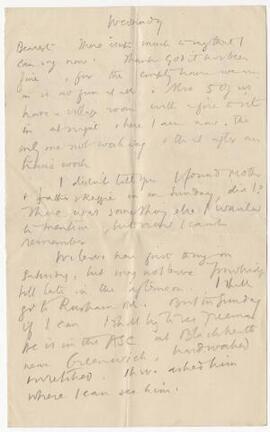 Wednesday
Dearest There isn't much to say that I
can say now. Thank God it has been
fine, for the
is no fun at all. Mrs 5 of us
have a village room with a fire to sit
in at night, where I am now, the
only one not working & that after an
hour's work.
I didn't tell you I found Mother
& father & Reggie in on Sunday, did I?
There was something else I wanted
to mention, but now I can't
remember.
We leave here first thing on
Saturday, but may not arrive
till late in the afternoon. I shall
go to Rusham Rd. But on Sunday
if I can I shall try to see Freeman
He is in the ASC at Blackheath
near Greenwich, hardworked
wretched. I have asked him
where I can see him.